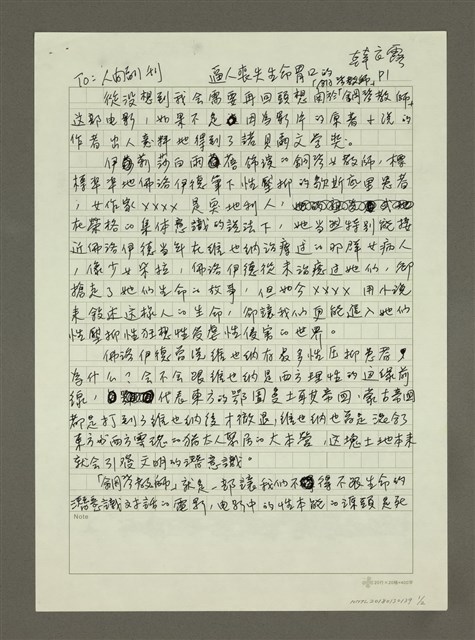 韓良露
TO：人間副刊 逼人喪失生命胃口的「鋼琴教師」 P1
從沒想到我会需要再回頭想関於「鋼琴教師」
這部电影，如果不是因為影片的原著小說的
作者出人意料地得到了諾貝爾文学獎。
伊莉莎白雨蓓飾演的鋼琴女教師，標
標準準地佛洛伊德筆下性壓抑的歇斯底里患者
，女作家XXXX是奧地利人，
在榮格的集体意識的說法下，她当然特别能接
近佛洛伊德当年在維也納治療過的那群女病人
，像少女朵拉，佛洛伊德從未治癒过她们，卻
搶走了她们生命的故事，但如今XXXX用小說
來敍述这樣人的生命，卻讓我们真能進入她们
性壓抑性狂想性虐待性侵害的世界。
佛洛伊德曾說維也納有最多性压抑患者，
為什么？会不会跟維也納是西方理性的边緣前
線，代表東方的鄂圖曼土耳其帝国、蒙古帝国
都是打到了維也納後才撤退，維也納也曾是混合了
東方或西方靈魂的猶太人聚居的大本營，这塊土地本來
就会引發文明的潛意識。
「鋼琴教師」就是一部讓我们不得不跟生命的
潛意識对話的電影，电影中的性本能的源頭是死
Note
NMTL20180130139 1/2